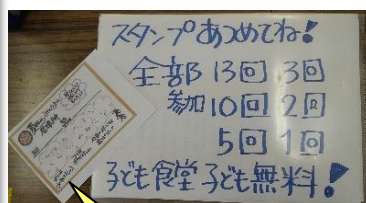 スタンプあつめてね!
全部 13回 3回
参加 10回 2回
5回 1回
子ども食堂 子ども無料!